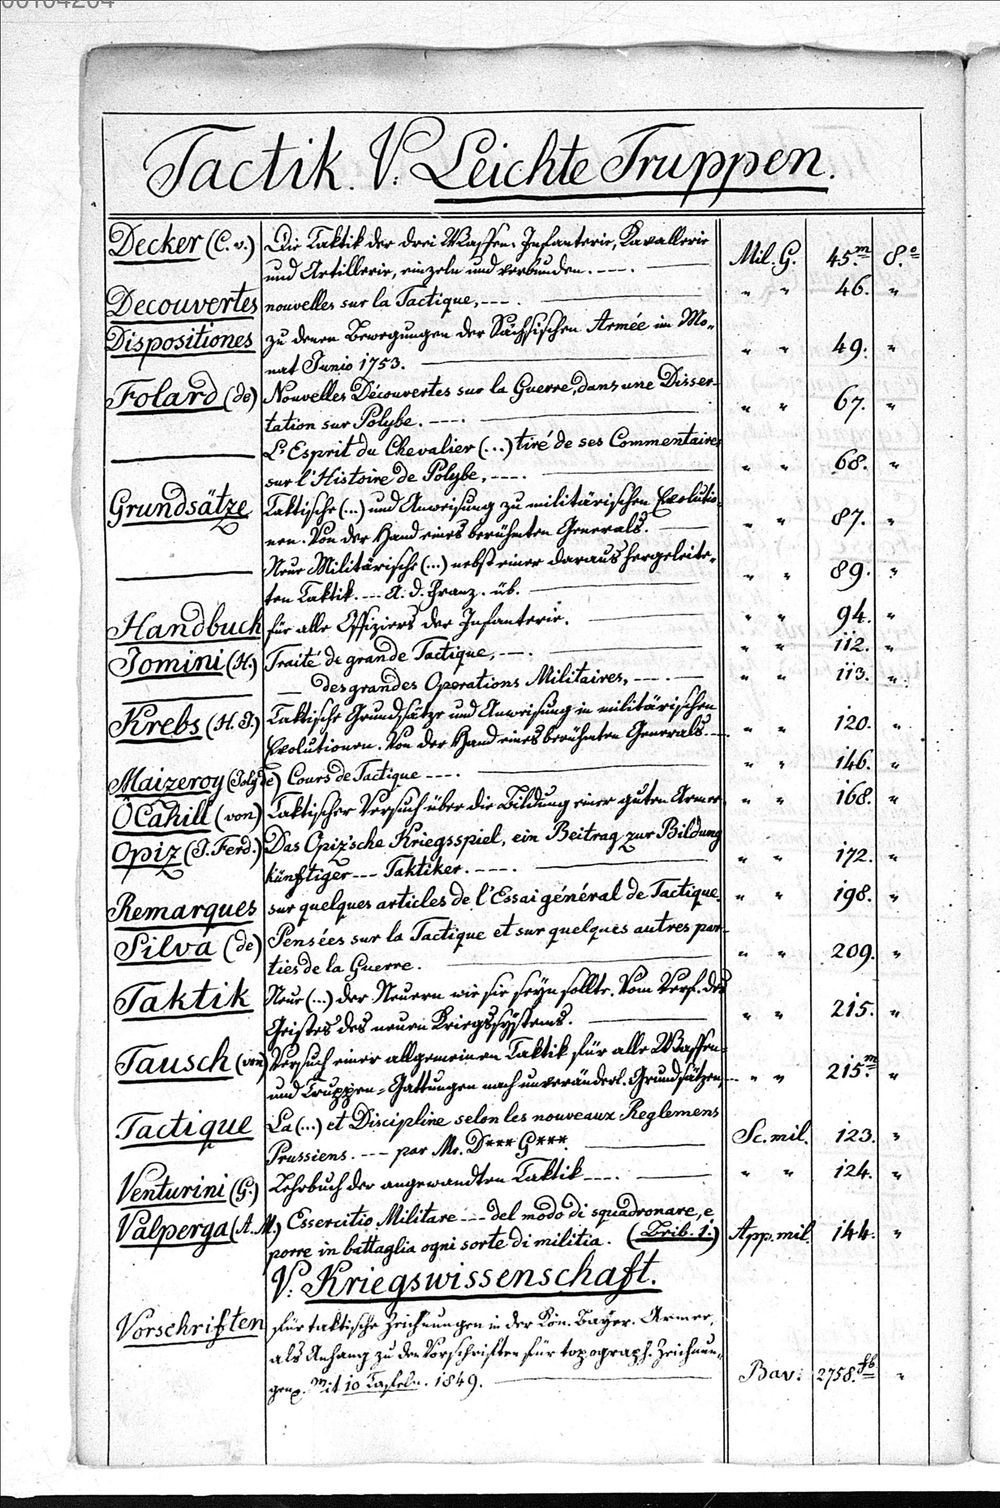 Tactik. V. Leichte Truppen.
Decker (C. v.) Die Taktik der drei Waffen: Infanterie, Kavallerie
und Artillerie, einzeln und verbunden. ---. Mil. G. 45.m 8.o
Decouvertes nouvelles sur la Tactique, ---. " " 46. "
Dispositiones zu denen Bewegungen der Sächsischen Armée im Mo-
nat Junio 1753. " " 49. "
Folard (de) Nouvelles Découvertes sur la Guerre, dans une Disser-
tation sur Polybe. ---. " " 67. "
L'Esprit du Chevalier (...) tiré de ses Commentaires
sur l'Histoire de Polybe, ---. " " 68. "
Grundsätze Taktische (...) und Anweisung zu militärischen Evolutio-
nen. Von der Hand eines berühmten Generals. " " 87. "
Neue Militärische (...) nebst einer daraus hergeleite-
ten Taktik. --- A. d. Franz. üb. " " 89. "
Handbuch für alle Offiziers der Infanterie. " " 94. "
Jomini (H.) Traité de grande Tactique, ---. " " 112. "
— des grandes Operations Militaires, ---. " " 113. "
Krebs (H. J.) Taktische Grundsätze und Anweisung in militärischen
Evolutionen. Von der Hand eines berühmten Generals. --- " " 120. "
Maizeroy (Joly de) Cours de Tactique ---. " " 146. "
OCahill (von) Taktischer Versuch über die Bildung einer guten Armee " " 168. "
Opiz (J. Ferd.) Das Opiz'sche Kriegsspiel, ein Beitrag zur Bildung
künftiger --- Taktiker. ---. " " 172. "
Remarques sur quelques articles de l'Essai général de Tactique. " " 198. "
Silva (de) Pensées sur la Tactique et sur quelques autres par-
ties de la Guerre. " " 209. "
Taktik Neue (...) der Neuern wie sie seyn sollte. Vom Verf. des
Geistes des neuen Kriegssystems. " " 215. "
Tausch (von) Versuch einer allgemeinen Taktik für alle Waffen-
und Truppen-Gattungen nach unveränderl. Grundsätzen, --- " " 215.m "
Tactique La (...) et Discipline selon les nouveaux Reglemens
Prussiens. --- par Mr. D*** G***. Sc. mil. 123. "
Venturini (G.) Lehrbuch der angewandten Taktik ---. " " 124. "
Valperga (A. M.) Essercitio Militare --- del modo di squadronare, e
porre in battaglia ogni sorte di militia. (Brib. 1.) App. mil. 144. "
V. Kriegswissenschaft.
Vorschriften für taktische Zeichnungen in der Kön. Bayer. Armee,
als Anhang zu den Vorschriften für topograph. Zeichnun-
gen. Mit 10 Tafeln. 1849. Bav. 2758.fb "